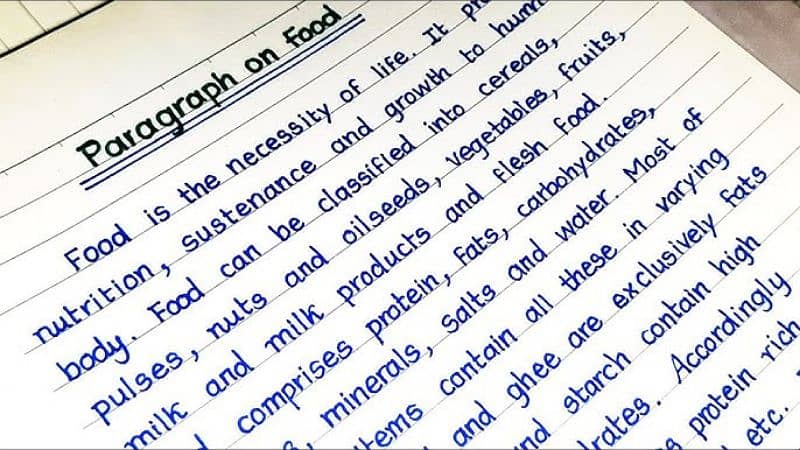 Paragraph on Food
Food is the necessity of life. It
nutrition, sustenance and growth to
body. Food can be classified into cereals,
pulses, nuts and oilseeds, vegetables, fruits,
milk and milk products and flesh food.
comprises protein, fats, carbohydrates,
minerals, salts and water. Most of
contain all these in varying
and ghee are exclusively fats
starch contain high
Accordingly
protein rich
etc.